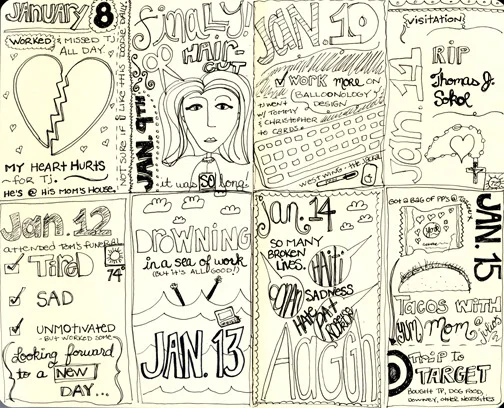 JANUARY 8
WORKED & MISSED TJ
ALL DAY.
MY HEART HURTS
~FOR TJ.~
HE'S @ HIS MOM'S HOUSE.
NOT SURE IF I LIKE THIS DOODLE DAILY
JAN. 9TH
FINALLY!
HAIR-
CUT
it was SO long
JAN. 10
WORK MORE ON
BALLOONOLOGY
DESIGN
WENT
W/ TOMMY &
CHRISTOPHER
TO CARDS.
WEST WING
VISITATION
Jan. 11
RIP
Thomas J.
Sokol
Jan. 12
attended Tom's funeral
TIRED
74°
SAD
UNMOTIVATED
-BUT WORKED SOME
Looking forward
to a NEW
DAY...
DROWNING
in a sea of work
(BUT IT'S ALL GOOD!)
JAN. 13
Jan. 14
SO MANY
BROKEN
LIVES.
HAITI
SADNESS
HAVE
EAT
JAN. 15
GOT A BAG OF PPS @
TACOS WITH
yum MOM @
Julio's
TRIP to
TARGET
BOUGHT TP, DOG FOOD,
DOWNEY, OTHER NECESSITIES